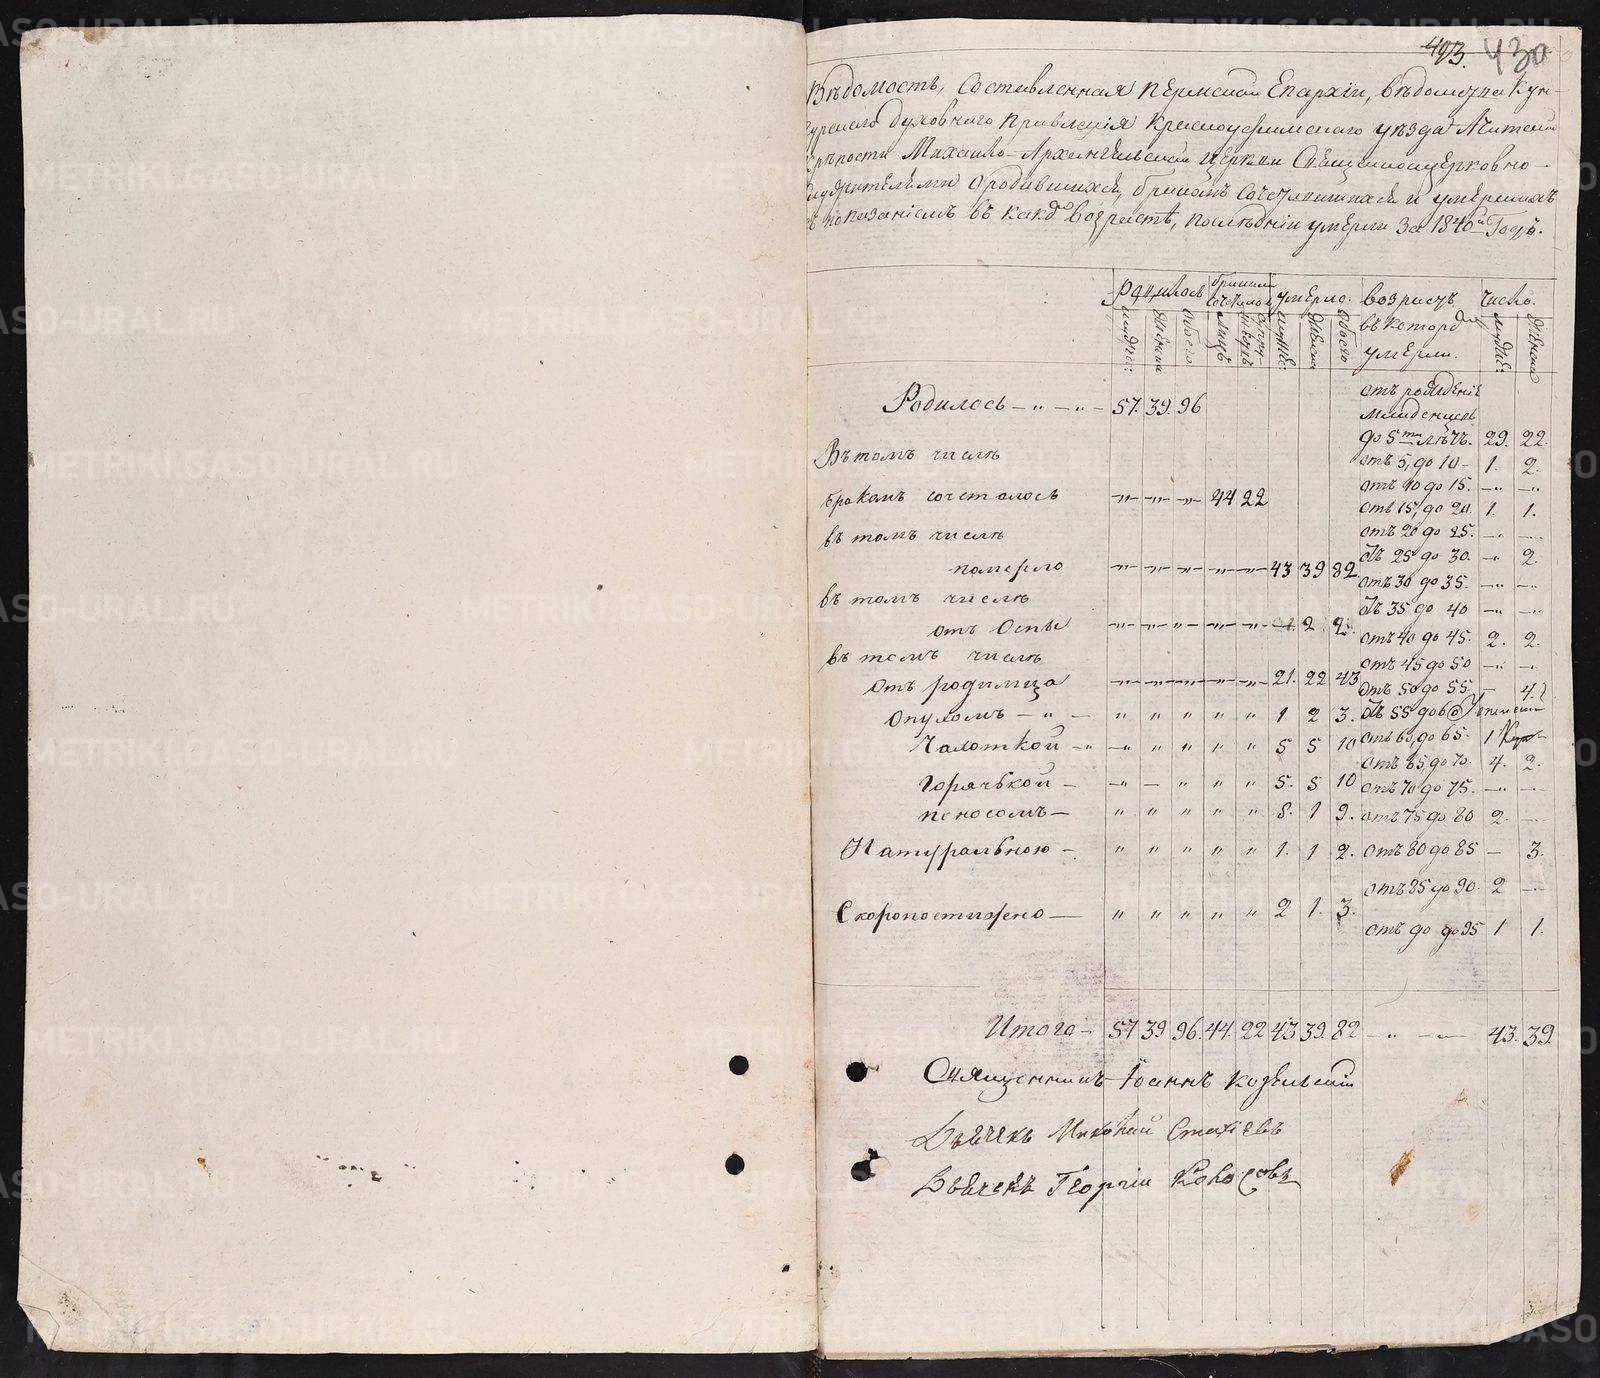 493. 430
Вѣдомость, Составленная Пермской Епархіи, вѣдомства Кун-
гурскаго Духовнаго Правленія Красноуфимскаго уѣзда Ачитской
крѣпости Михаило-Архангельской Церкви Священноцерковно-
служителями о родившихся, бракомъ сочетавшихся и умершихъ
съ показаніемъ въ какдо возрастѣ, послѣдніи умерли за 1840й Годъ.
Родилось бракомъ сочеталось умерло. возрастъ въ которо умерли. число.
мужес: женска обоего лицъ мужес: женска обоего мужес: женска
Родилось — „ — „ — 57. 39. 96
отъ рожденіе
младенцевъ
до 5ти лѣтъ. 29. 22.
Въ томъ числѣ
отъ 5, до 10 - 1. 2.
отъ 10 до 15. —„ —„
бракомъ сочеталось —„— —„— —„— 44 22
отъ 15, до 20. 1. 1.
въ томъ числѣ
отъ 20 до 25. —„ —
померло —„— —„— —„— —„— —„— 43 39 82
отъ 25 до 30. —„ 2.
отъ 30 до 35. —„ —„
въ томъ числѣ
отъ 35 до 40 —„ —„
отъ Оспы —„— —„— —„— —„— —„— 2. 2.
отъ 40 до 45. 2. 2.
въ томъ числѣ
отъ 45 до 50 —„ —„
отъ родимца —„— —„— —„— —„— —„— 21. 22 43
отъ 50 до 55. — 4.
опухомъ — „ — „ „ „ „ „ 1 2 3.
отъ 55 до 60
Чахоткой —„ —„ „ „ „ „ 5 5 10
отъ 60, до 65. 1
отъ 65, до 70. 4. 2.
Горячькой — —„ — „ „ „ 5. 5 10
отъ 70 до 75. —„ —
поносомъ — „ „ „ „ „ 8. 1 9.
отъ 75 до 80 2. —
Натуральною —. „ „ „ „ „ 1. 1 2.
отъ 80 до 85 — 3.
отъ 85 до 90. 2 —
Скоропостижно — „ „ „ „ „ 2 1. 3.
отъ 90 до 95 1 1.
Итого — 57 39 96. 44. 22 43 39. 82 — „ — „ — 43. 39.
Священникъ Іоаннъ Козельскій
Дьячекъ Николай Стахіевъ
Дьячекъ Георгій Кокосовъ
METRIKI.GASO-URAL.RU